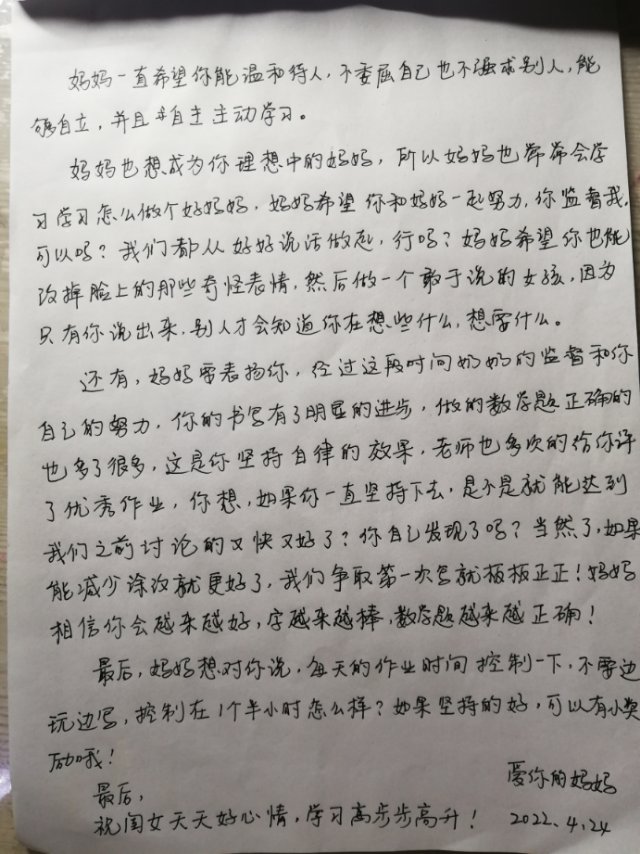 妈妈一直希望你能温和待人，不委屈自己也不强求别人，能
够自立，并且自主主动学习。
妈妈也想成为你理想中的妈妈，所以妈妈也常常会学
习学习怎么做个好妈妈，妈妈希望你和妈妈一起努力，你监督我，
可以吗？我们都从好好说话做起，行吗？妈妈希望你也能
改掉脸上的那些奇怪表情，然后做一个敢于说的女孩，因为
只有你说出来，别人才会知道你在想些什么，想要什么。
还有，妈妈要表扬你，经过这段时间奶奶的监督和你
自己的努力，你的书写有了明显的进步，做的数学题正确的
也多了很多，这是你坚持自律的效果，老师也多次的给你评
了优秀作业，你想，如果你一直坚持下去，是不是就能达到
我们之前讨论的又快又好了？你自己发现了吗？当然了，如果
能减少涂改就更好了，我们争取第一次写就板板正正！妈妈
相信你会越来越好，字越来越棒，数学题越来越正确！
最后，妈妈想对你说，每天的作业时间控制一下，不要边
玩边写，控制在1个半小时怎么样？如果坚持的好，可以有小奖
励哦！
爱你的妈妈
最后，
祝闺女天天好心情，学习高步步高升！ 2022.4.24